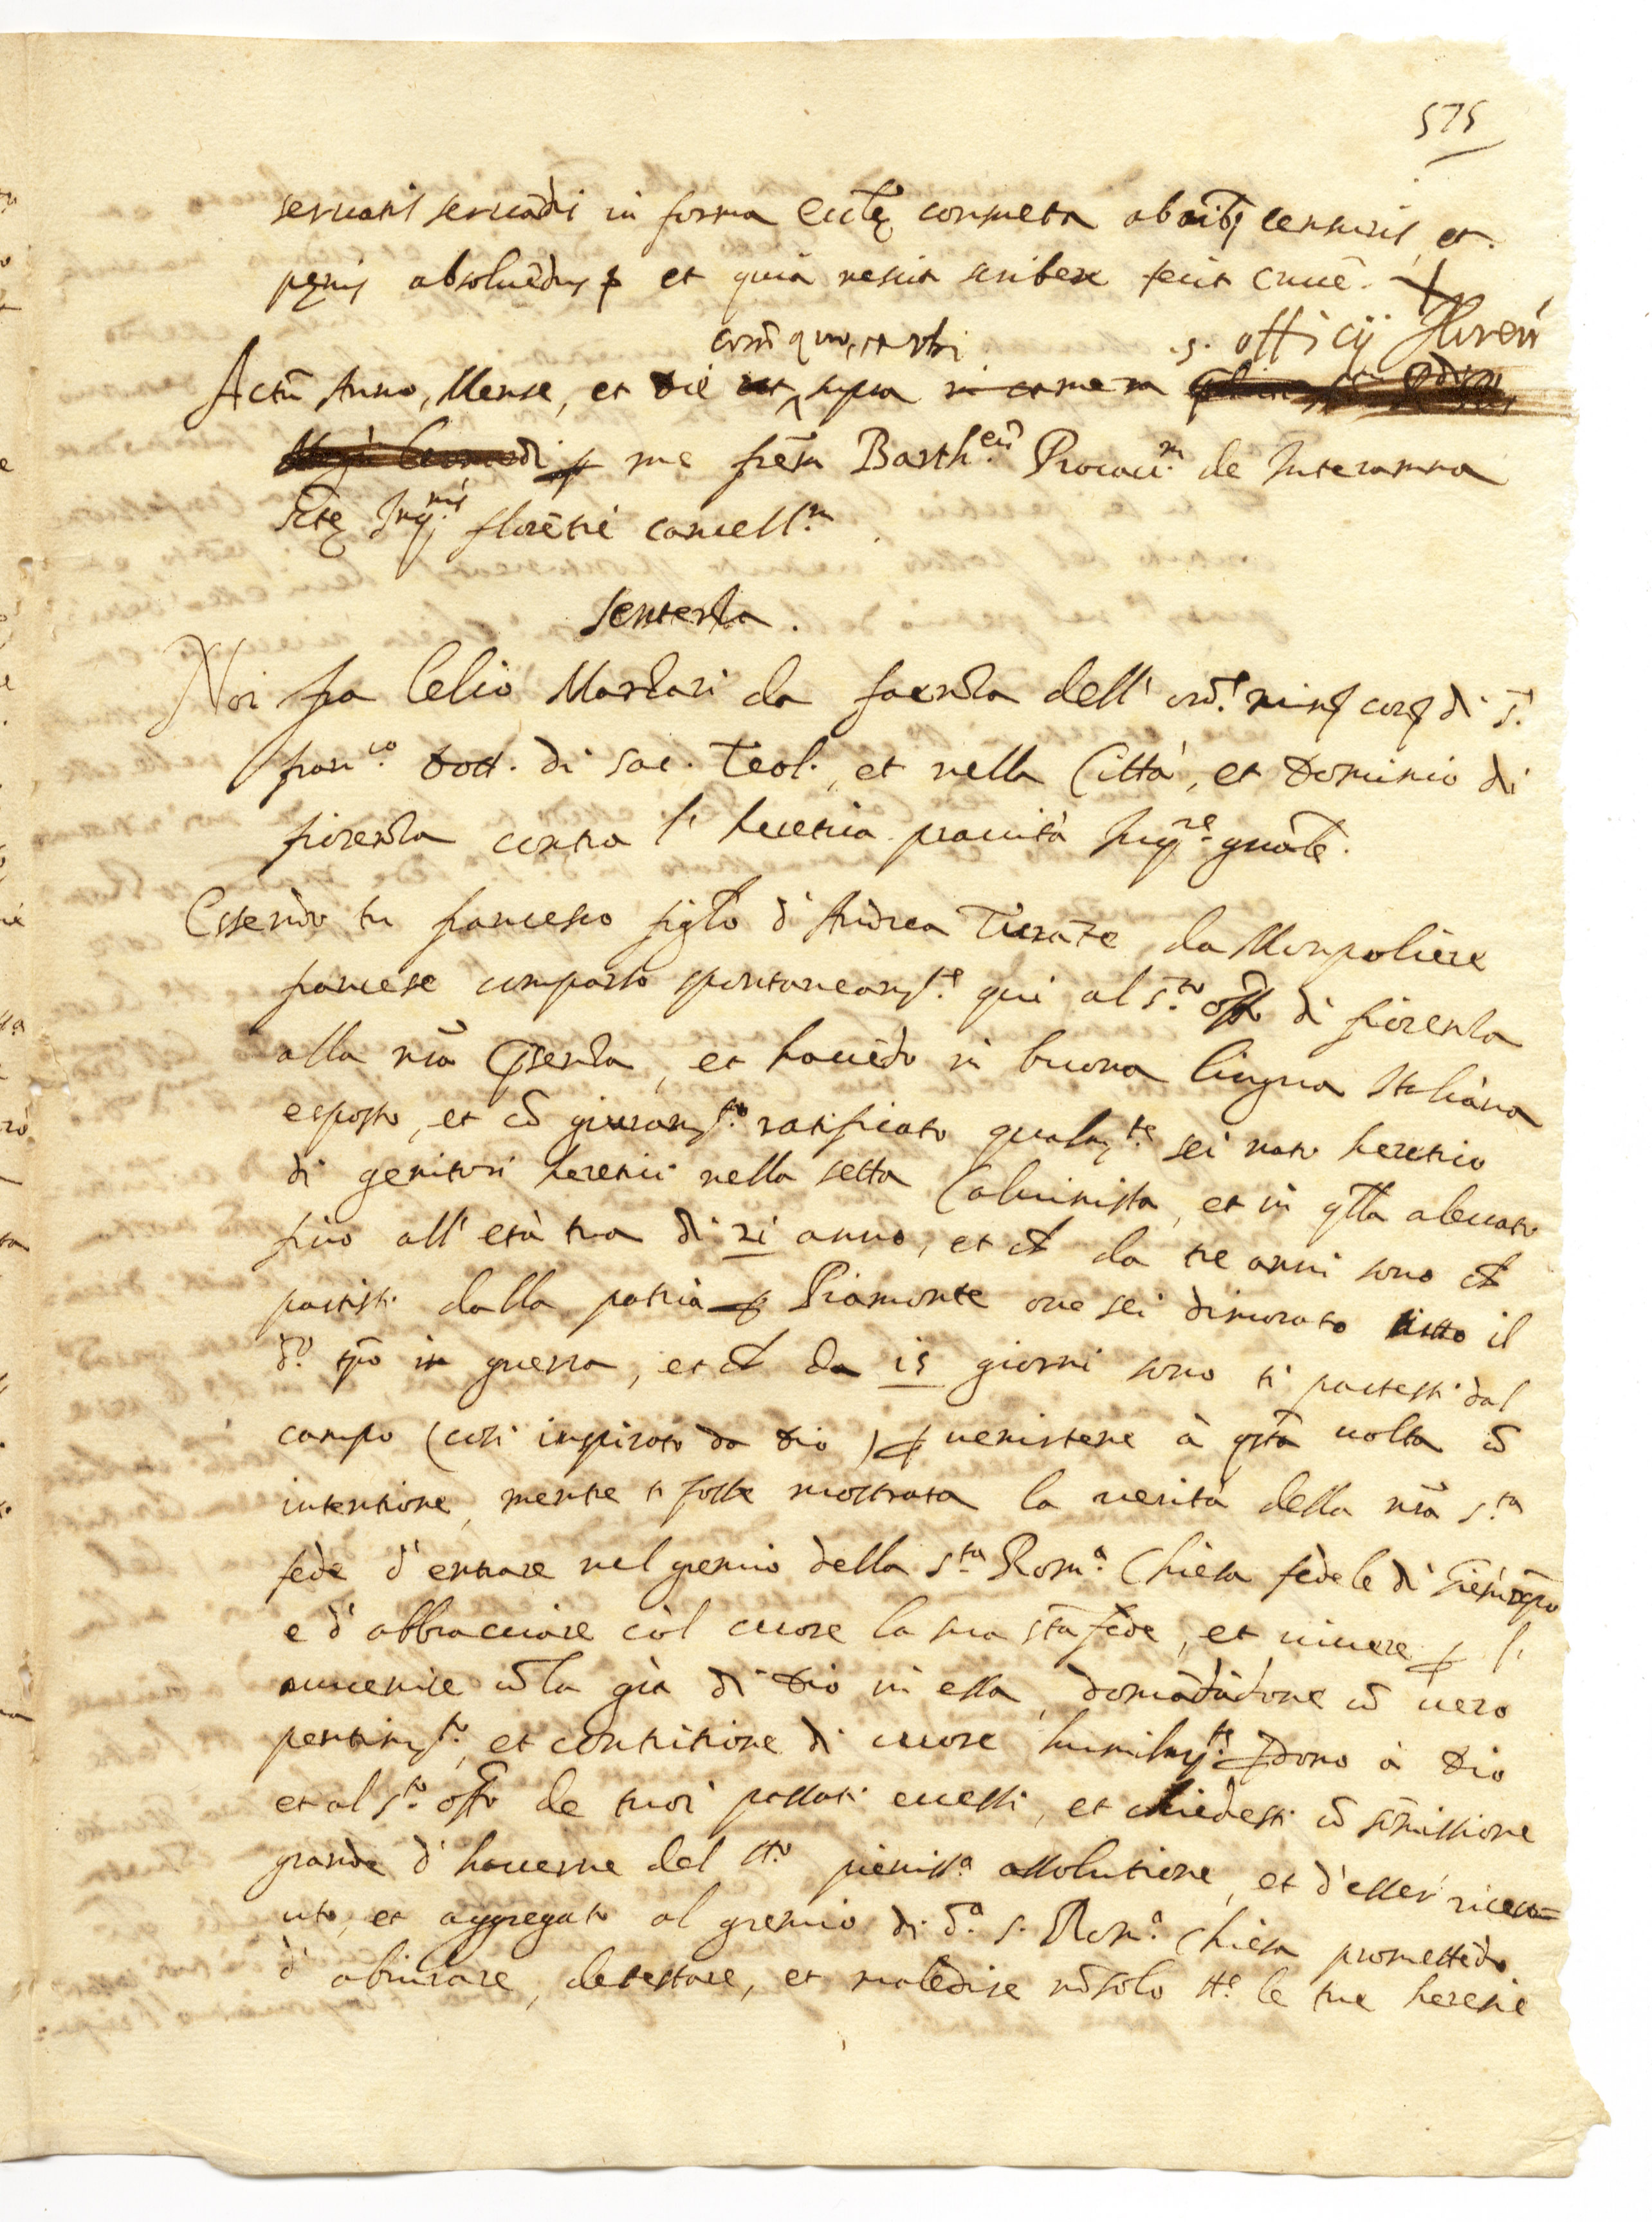 575
seruatis seruãdis in forma Ecctę consueta ab oĩbȝ censuris, et
pęnis absoluẽdus et quia nescit scribere fecit crucẽ. +
corã quo, et ubi
.s. officij Floreñ
Actũ Anno, Mense, et Die supra in camera
me frẽm Barth.eũ Procacc.m de Interamna
sctę Inq.nis florẽtie cancell.m
Sentenza.
Noi fra Celio Marzari da faenza dell' ord.e min. con. di S.
fran.co Dott. di Sac. Teol., et nella Città, et Dominio di
fiorenza contra l' heretica prauità Inq.re gñale.
Essendo tu francesco figlo d'Andrea Turate da Monpoliere
francese comparso spontaneam.te qui al S.to offo di fiorenza
alla nrã psenza, et hauẽdo in buona lingua Italiana
esposto, et cõ giuram.to ratificato qualm.te sei nato heretico
di genitori heretici nella setta Caluinista, et in qlla aleuato
fino all' età tua di 21 anno, et ch da tre anni sono ch
partisti dalla patria p Piamonte oue sei dimorato tutto il
d.o tpõ in guerra, et ch da 15 giorni sono ti partesti dal
campo (cosi inspirato da Dio) p uenirtene à qsta uolta cõ
intentione, mentre ti fosse mostrata la uerità della nrã S.ta
fede d'entrare nel gremio della S.ta Rom.a Chiesa fedele di
e d'abbracciare col cuore la sua sta fede, et uiuere p l'
auuenire cõ la grã di Dio in essa, domãdãdone cõ uero
pentim.to, et contritione di cuore humilm.te pdono à Dio
et al S.to offo de tuoi passati eccessi, et chiedesti cõ sõmissione
grande d'hauerne del tt.o pieniss.a assolutione, et d'esser riceu=
uto, et aggregato al gremio di d.a S. Rom.a Chiesa promettẽdo
d'abiurare, detestare, et maledire nõ solo tt.e le tue heresie